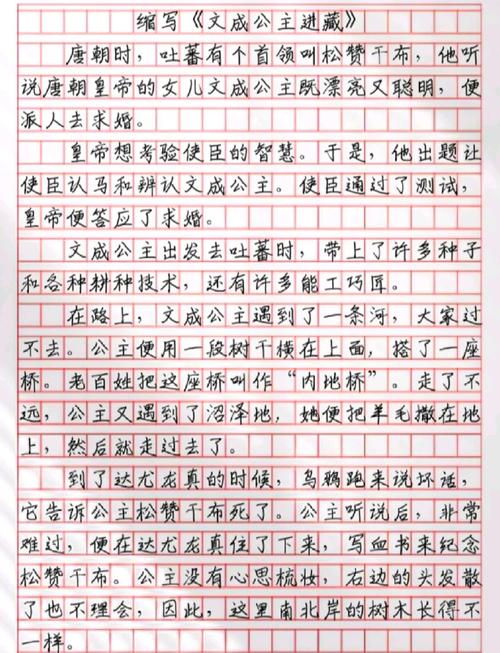 缩写《文成公主进藏》
唐朝时，吐蕃有个首领叫松赞干布，他听
说唐朝皇帝的女儿文成公主既漂亮又聪明，便
派人去求婚。
皇帝想考验使臣的智慧。于是，他出题让
使臣认马和辨认文成公主。使臣通过了测试，
皇帝便答应了求婚。
文成公主出发去吐蕃时，带上了许多种子
和各种耕种技术，还有许多能工巧匠。
在路上，文成公主遇到了一条河，大家过
不去。公主便用一段树干横在上面，搭了一座
桥。老百姓把这座桥叫作“内地桥”。走了不
远，公主又遇到了沼泽地，她便把羊毛撒在地
上，然后就走过去了。
到了达尤龙真的时候，乌鸦跑来说坏话，
它告诉公主松赞干布死了。公主听说后，非常
难过，便在达尤龙真住了下来，写血书来纪念
松赞干布。公主没有心思梳妆，右边的头发散
了也不理会，因此，这里南北岸的树木长得不
一样。